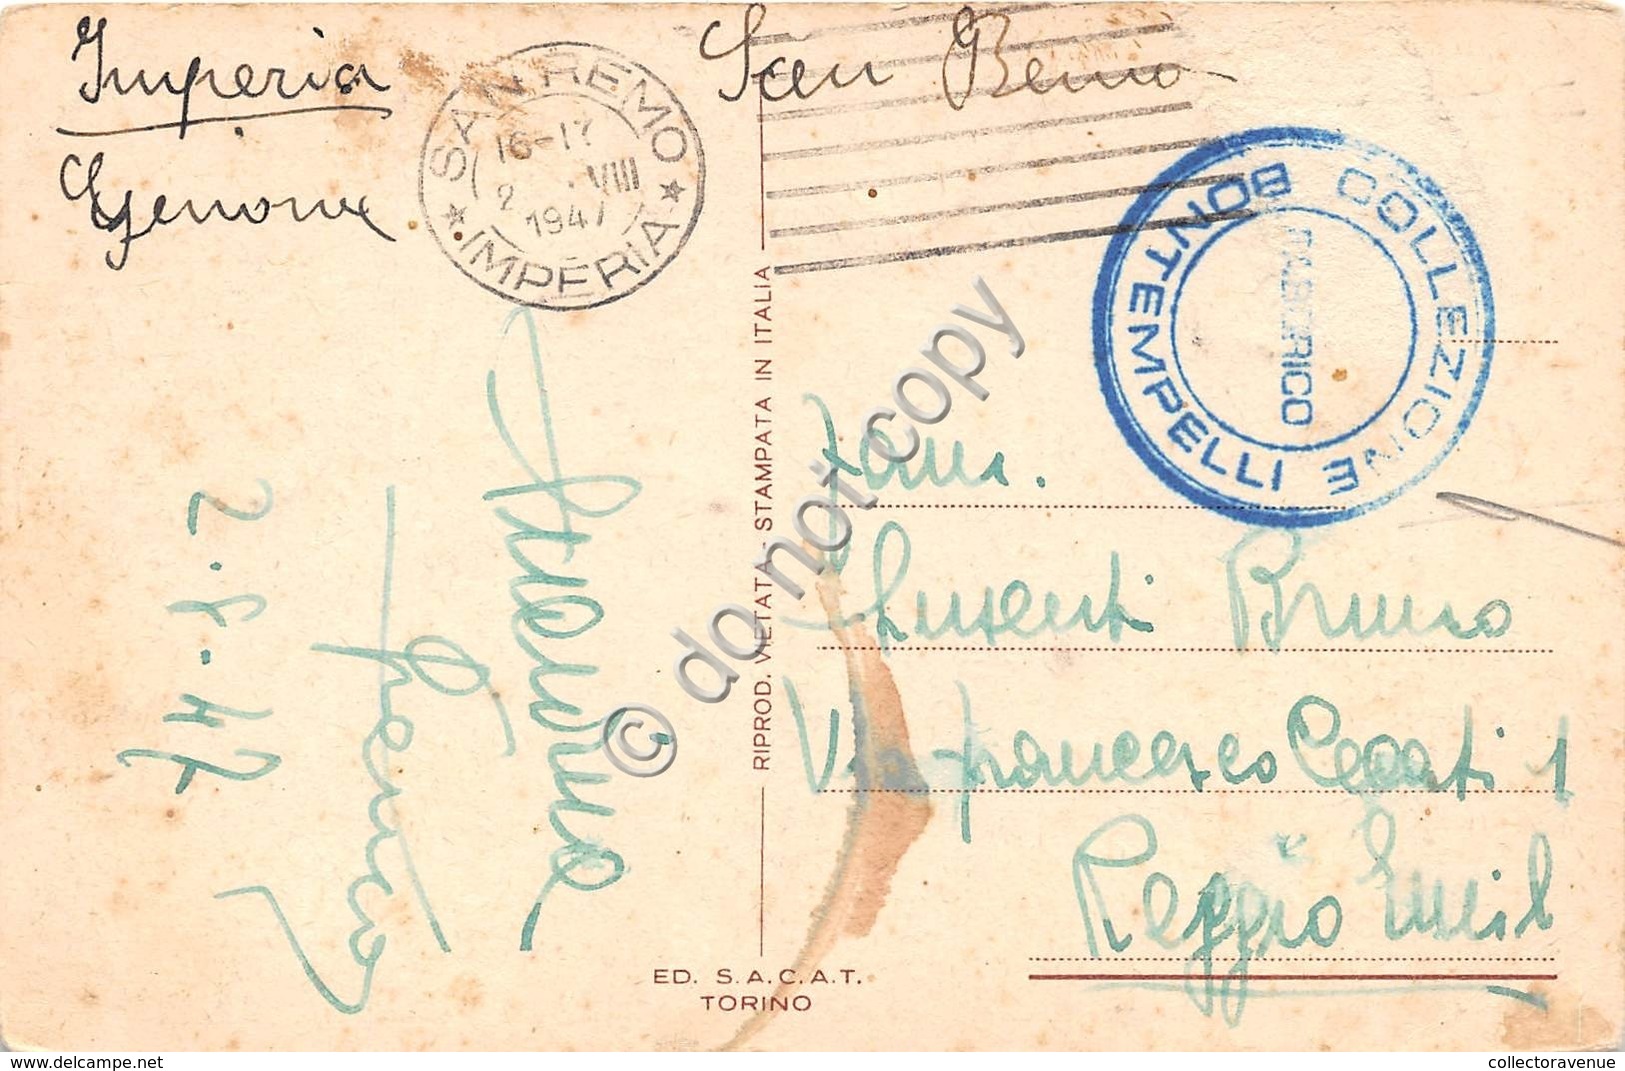 Imperia
Genova
San Remo
SAN REMO
16-17
2 . VIII
1947
IMPERIA
COLLEZIONE
BONTEMPELLI
2.8.47
RIPROD. VIETATA - STAMPATA IN ITALIA
Fam.
Bruno
Via Francesco 1
Reggio Emil
ED. S.A.C.A.T.
TORINO
© do not copy
delcampe.net
collectoravenue